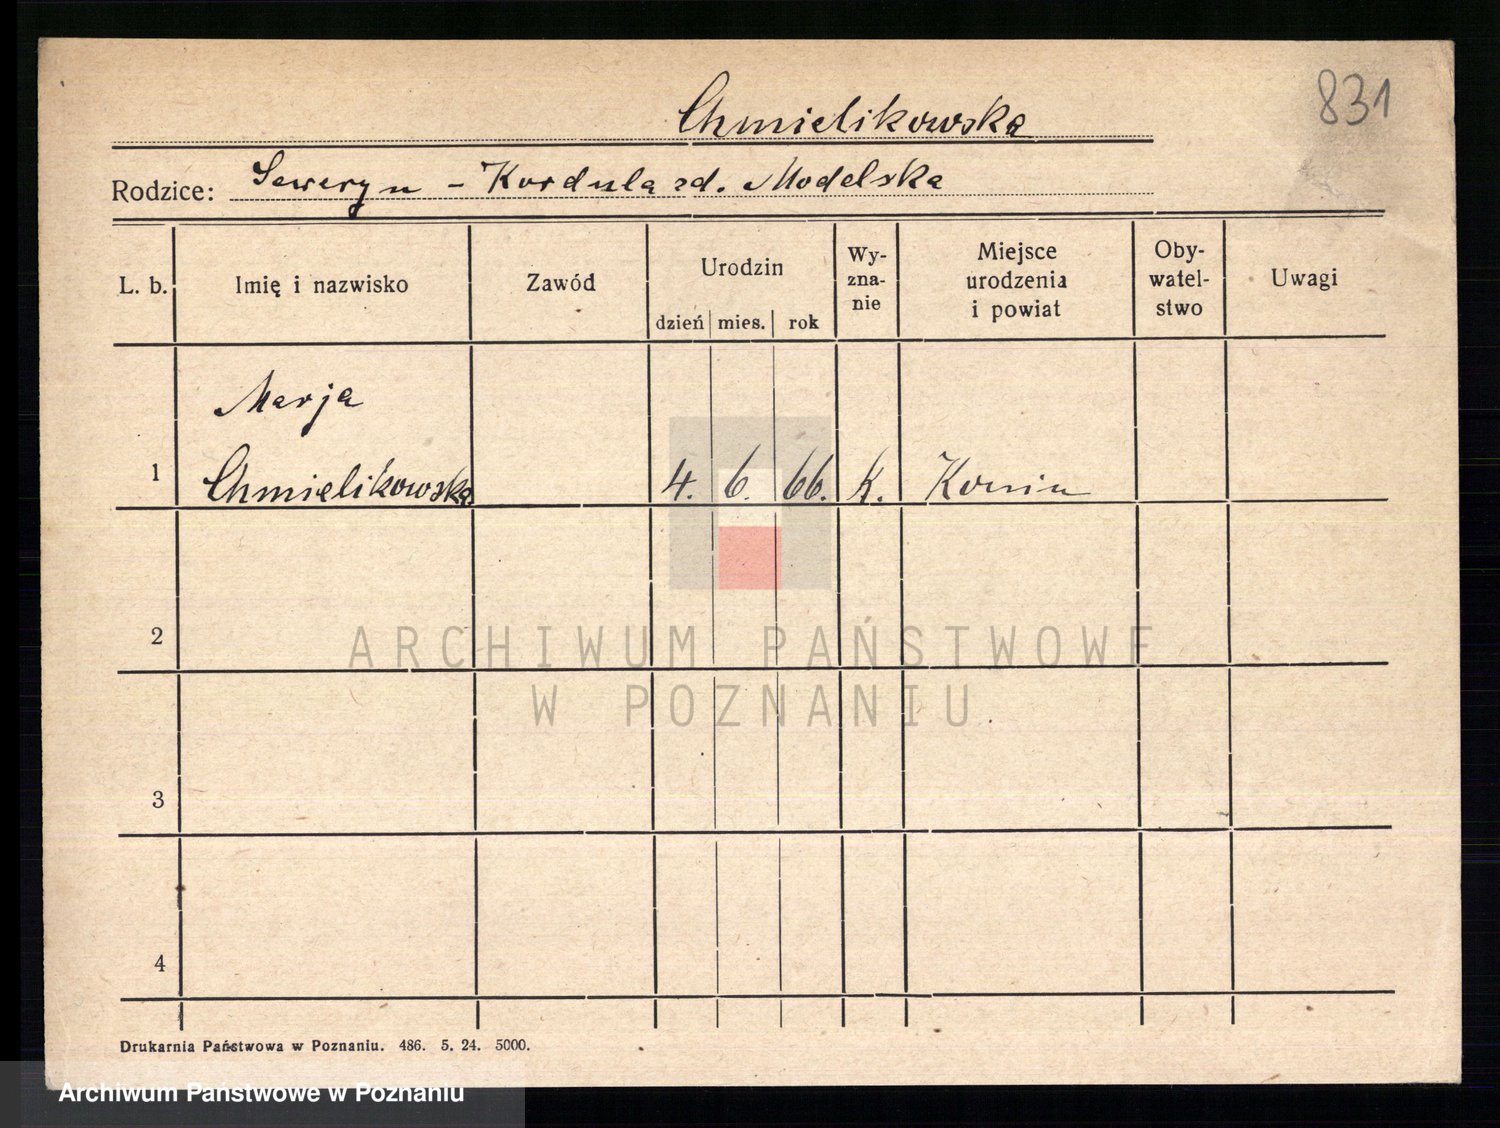 831
Chmielikowska
Rodzice: Seweryn - Kordula zd. Modelska
L. b.
Imię i nazwisko
Zawód
Urodzin
dzień mies. rok
Wy-
zna-
nie
Miejsce
urodzenia
i powiat
Oby-
watel-
stwo
Uwagi
Marja
1 Chmielikowska 4. 6. 66. k. Konin
2
3
4
ARCHIWUM PAŃSTWOWE
W POZNANIU
Drukarnia Państwowa w Poznaniu. 486. 5. 24. 5000.
Archiwum Państwowe w Poznaniu